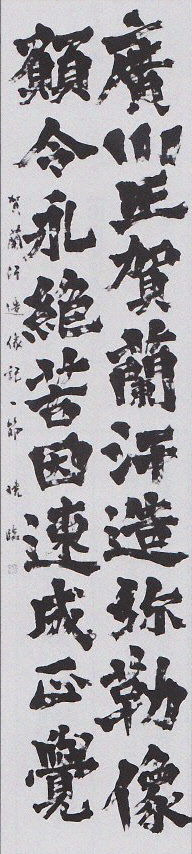 廣川王賀蘭汗造弥勒像
願令永絶苦因速成正覺
賀蘭汗造像記一節 臨